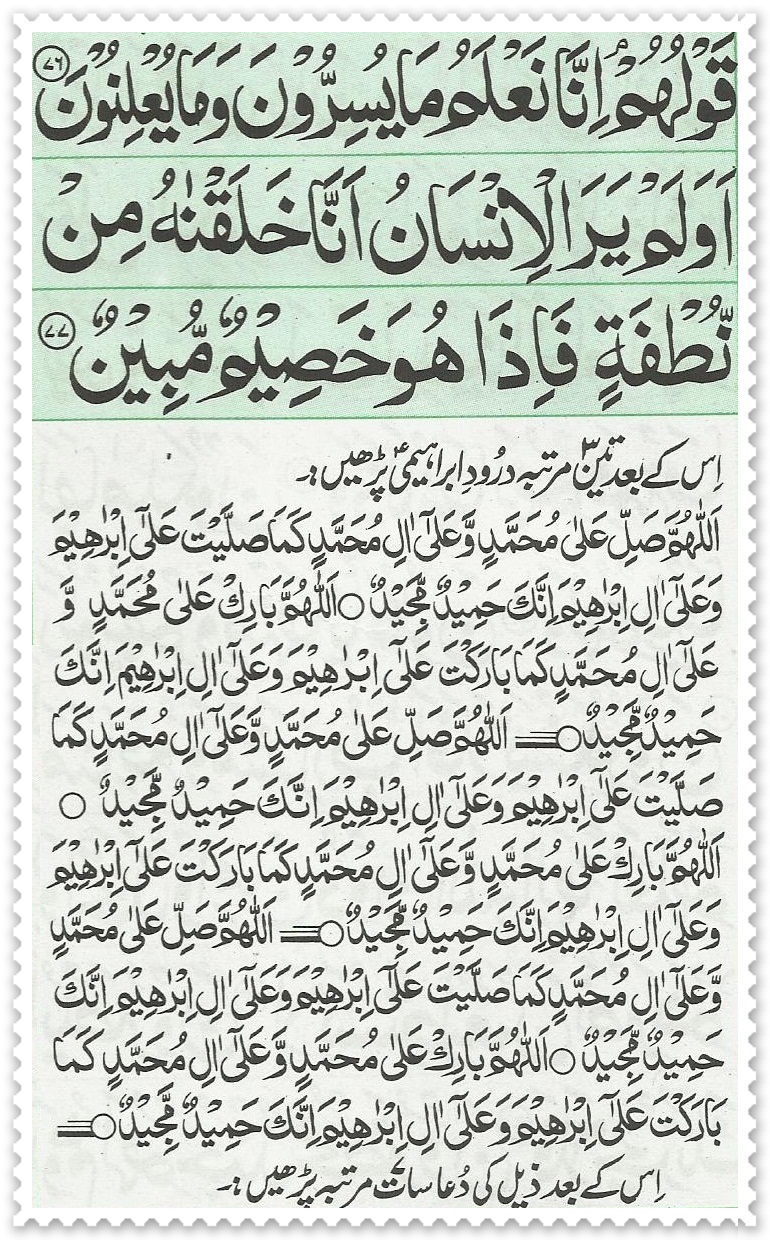 قَوْلُهُمْ ۘ اِنَّا نَعْلَمُ مَا يُسِرُّوْنَ وَمَا يُعْلِنُوْنَ ﴿٧٦﴾
اَوَلَمْ يَرَ الْاِنْسَانُ اَنَّا خَلَقْنٰهُ مِنْ
نُّطْفَةٍ فَاِذَا هُوَ خَصِيْمٌ مُّبِيْنٌ ﴿٧٧﴾
اِس کے بعد تین ۳ مرتبہ درُودِ ابراہیمیؑ پڑھیں :۔
اَللّٰهُمَّ صَلِّ عَلٰى مُحَمَّدٍ وَّعَلٰٓى اٰلِ مُحَمَّدٍ كَمَا صَلَّيْتَ عَلٰٓى اِبْرٰهِيْمَ
وَعَلٰٓى اٰلِ اِبْرٰهِيْمَ اِنَّكَ حَمِيْدٌ مَّجِيْدٌ ○ اَللّٰهُمَّ بَارِكْ عَلٰى مُحَمَّدٍ وَّ
عَلٰٓى اٰلِ مُحَمَّدٍ كَمَا بَارَكْتَ عَلٰٓى اِبْرٰهِيْمَ وَعَلٰٓى اٰلِ اِبْرٰهِيْمَ اِنَّكَ
حَمِيْدٌ مَّجِيْدٌ ○ اَللّٰهُمَّ صَلِّ عَلٰى مُحَمَّدٍ وَّعَلٰٓى اٰلِ مُحَمَّدٍ كَمَا
صَلَّيْتَ عَلٰٓى اِبْرٰهِيْمَ وَعَلٰٓى اٰلِ اِبْرٰهِيْمَ اِنَّكَ حَمِيْدٌ مَّجِيْدٌ ○
اَللّٰهُمَّ بَارِكْ عَلٰى مُحَمَّدٍ وَّعَلٰٓى اٰلِ مُحَمَّدٍ كَمَا بَارَكْتَ عَلٰٓى اِبْرٰهِيْمَ
وَعَلٰٓى اٰلِ اِبْرٰهِيْمَ اِنَّكَ حَمِيْدٌ مَّجِيْدٌ ○ اَللّٰهُمَّ صَلِّ عَلٰى مُحَمَّدٍ
وَّعَلٰٓى اٰلِ مُحَمَّدٍ كَمَا صَلَّيْتَ عَلٰٓى اِبْرٰهِيْمَ وَعَلٰٓى اٰلِ اِبْرٰهِيْمَ اِنَّكَ
حَمِيْدٌ مَّجِيْدٌ ○ اَللّٰهُمَّ بَارِكْ عَلٰى مُحَمَّدٍ وَّعَلٰٓى اٰلِ مُحَمَّدٍ كَمَا
بَارَكْتَ عَلٰٓى اِبْرٰهِيْمَ وَعَلٰٓى اٰلِ اِبْرٰهِيْمَ اِنَّكَ حَمِيْدٌ مَّجِيْدٌ ○
اِس کے بعد ذیل کی دُعا سات ۷ مرتبہ پڑھیں :۔